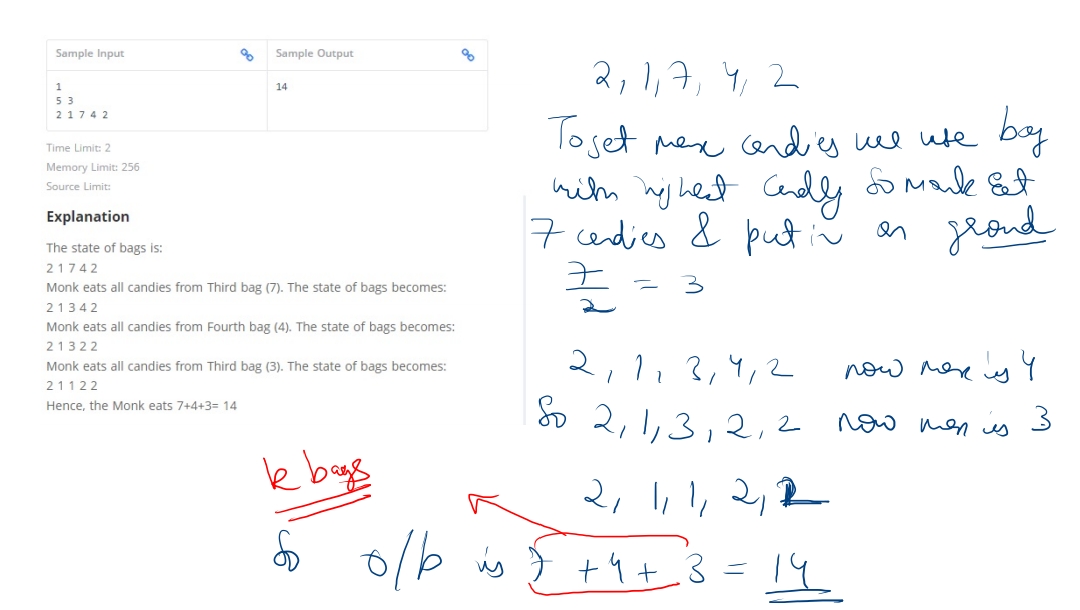 Sample Input
Sample Output
1
5 3
2 1 7 4 2
14
Time Limit: 2
Memory Limit: 256
Source Limit:
Explanation
The state of bags is:
2 1 7 4 2
Monk eats all candies from Third bag (7). The state of bags becomes:
2 1 3 4 2
Monk eats all candies from Fourth bag (4). The state of bags becomes:
2 1 3 2 2
Monk eats all candies from Third bag (3). The state of bags becomes:
2 1 1 2 2
Hence, the Monk eats 7+4+3= 14
2, 1, 7, 4, 2
To get max candies we use bag
with highest candy So Monk Eat
7 candies & put in on grond
7/2 = 3
2, 1, 3, 4, 2 now max is 4
So 2, 1, 3, 2, 2 now max is 3
2, 1, 1, 2, 2
k bags
So o/p is 7 + 4 + 3 = 14